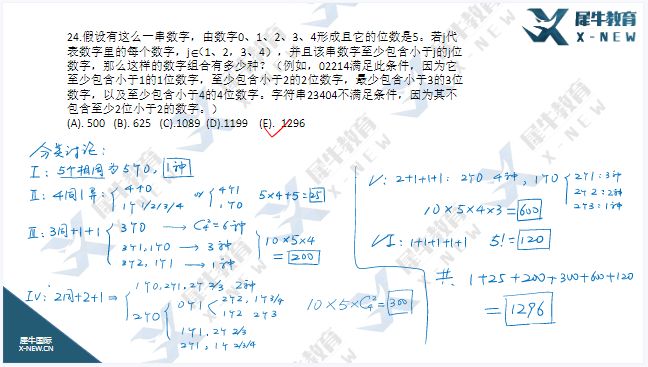 犀牛教育
X-NEW
24.假设有这么一串数字，由数字0、1、2、3、4形成且它的位数是5。若j代
表数字里的每个数字，j∈{1、2，3、4}，并且该串数字至少包含小于j的j位
数字，那么这样的数字组合有多少种？（例如，02214满足此条件，因为它
至少包含小于1的1位数字，至少包含小于2的2位数字，最少包含小于3的3位
数字，以及至少包含小于4的4位数字。字符串23404不满足条件，因为其不
包含至少2位小于2的数字。）
(A). 500 (B). 625 (C).1089 (D).1199 (E). 1296
分类讨论：
I：5个相同为5个0，1种
II：4同1异：4个0 1个1/2/3/4 or 4个1 1个0 5×4+5=25
III：3同+1+1 3个0 → C₄²=6种
3个1,1个0 → 3种
3个2,1个1 → 1种
10×5×4
=200
IV：2同+2+1 ⇒ 1个0,2个1,2个2/3 2种
2个0 0个1 2个2,1个3/4
1个2 2个3
1个1,2个2/3
2个1,1个2/3/4
10×5×C₄²=300
V：2+1+1+1：2个0 4种，1个0 2个1：3种
2个2：2种
2个3：1种
10×5×4×3=600
VI：1+1+1+1+1 5!=120
共：1+25+200+300+600+120
=1296
犀牛国际
X-NEW.CN